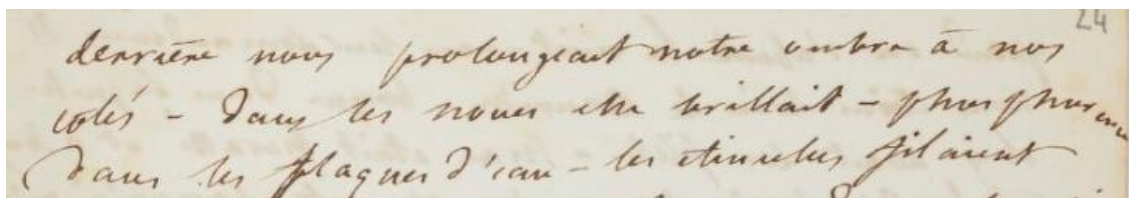 24
derrière nous prolongeait notre ombre à nos
cotés - dans les noues elle brillait - phosphorence
dans les flaques d'eau - les étincelles filaient